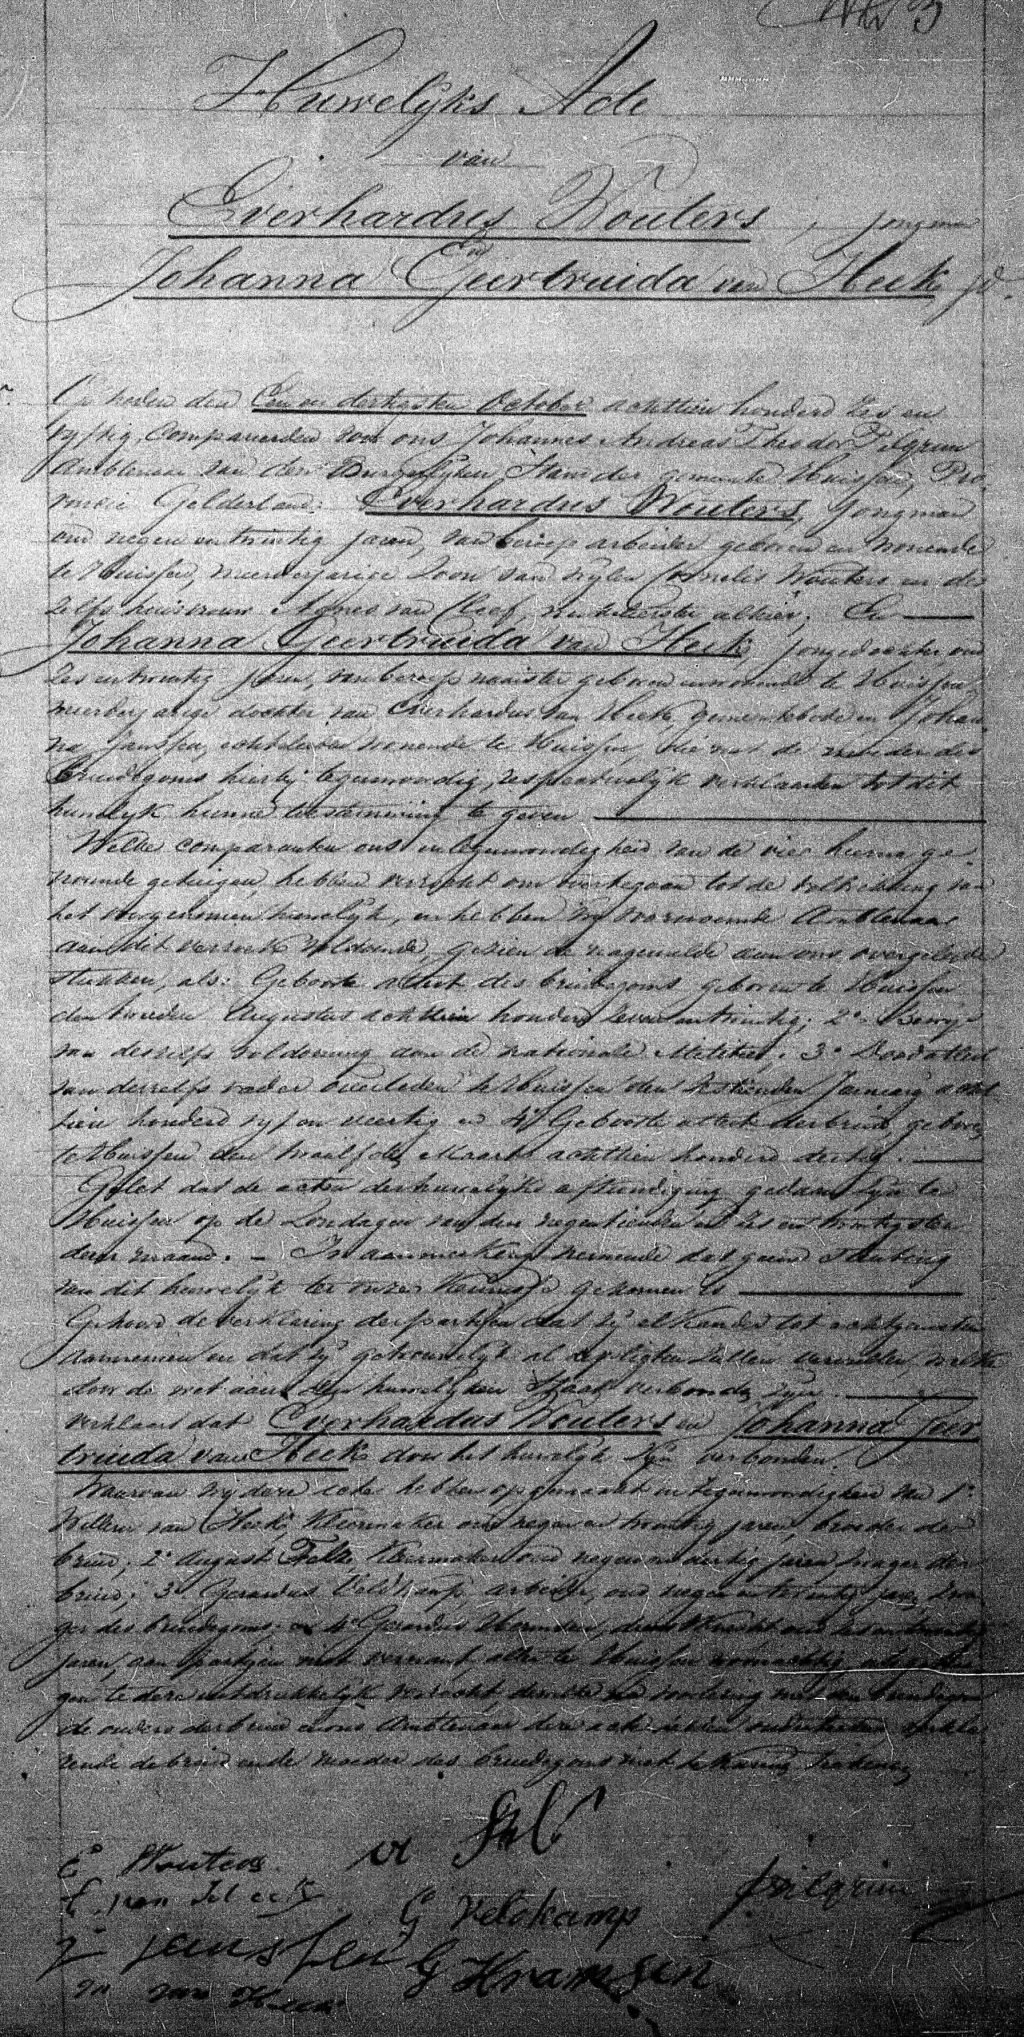 No 3
Huwelijks Acte
van
Everhardus Wouters, jongman
En
Johanna Geertruida van Heek jd.
Op heden den Een en dertigsten October achttien honderd zes en
vyftig, Compareerden voor ons Johannes Andreas Theodor Pilgrim
Ambtenaar van den Burgerlyken Stand der gemeente Huissen, Pro-
vincie Gelderland: Everhardus Wouters, Jongman
oud negen en twintig jaren, van beroep arbeider geboren en wonende
te Huissen, meerderjarige Zoon van wylen Cornelis Wouters en des
zelfs huisvrouw Agnes van Kleef, alhier; En
Johanna Geertruida van Heek, jonge dochter oud
zes en twintig jaren, van beroep naaister geboren en wonende te Huissen,
meerderjarige dochter van Everhardus van Heek, gemeentebode en Johan
na Janssen, echtelieden wonende te Huissen die met de moeder des
Bruidegoms hierby tegenwoordig, respectievelyk verklaarden tot dit
huwelyk hunne toestemming te geven
Welke comparanten ons in tegenwoordigheid van de vier hierna ge-
noemde getuigen, hebben verzocht om overtegaan tot de voltrekking van
het voorgenomen huwelyk, en hebben Wy voornoemde Ambtenaar
aan dit verzoek voldoende, gezien de nagemelde aan ons overgelegde
stukken, als: Geboorte attest des bruidegoms geboren te Huissen
den tweeden Augustus achttien honderd zeven en twintig; 2o Bewys
van deszelfs voldoening aan de nationale Militie; 3o Dood attest
van deszelfs vader overleden te Huissen den January acht
tien honderd vyf en veertig en 4o Geboorte attest der bruid, geboren
te Huissen den twaalfden Maart achttien honderd dertig.
Gelet dat de acten der huwelyks afkondiging gedaan zyn te
Huissen op de Zondagen van den negentienden en zes en twintigsten
dezer maand. – In aanmerking nemende dat geene stuiting
van dit huwelyk ter onzer kennisse gekomen is
Gehoord de verklaring der partyen dat zy elkander tot echtgenoten
aannemen en dat zy getrouwelyk al de pligten zullen vervullen, welke
door de wet aan den huwelyken Staat verbonden zyn.
verklaart dat Everhardus Wouters en Johanna Geer
truida van Heek door het huwelyk zyn verbonden.
Waarvan wy deze acte hebben opgemaakt in tegenwoordigheid van 1o
Willem van Heek, Kleermaker oud negen en twintig jaren, broeder der
bruid; 2o August Felle, Kleermaker oud negen en dertig jaren, zwager der
bruid; 3o Gerardus Veldkamp, arbeider, oud negen en twintig jaren, zwa
ger des bruidegoms en 4o Gerardus oud zes en twintig
jaren, aan partyen niet verwant, allen te Huissen woonachtig, als getui
gen te dezen uitdrukkelyk verzocht, na voorlezing met den bruidegom
de ouders der bruid en ons Ambtenaar deze acte onderteekend verkla
rende de bruid en de moeder des bruidegoms niet te kunnen
E Wouters
E. van Heek
J Janssen
W van Heek
A Fel
G Veldkamp
G Kramsen
Pilgrim